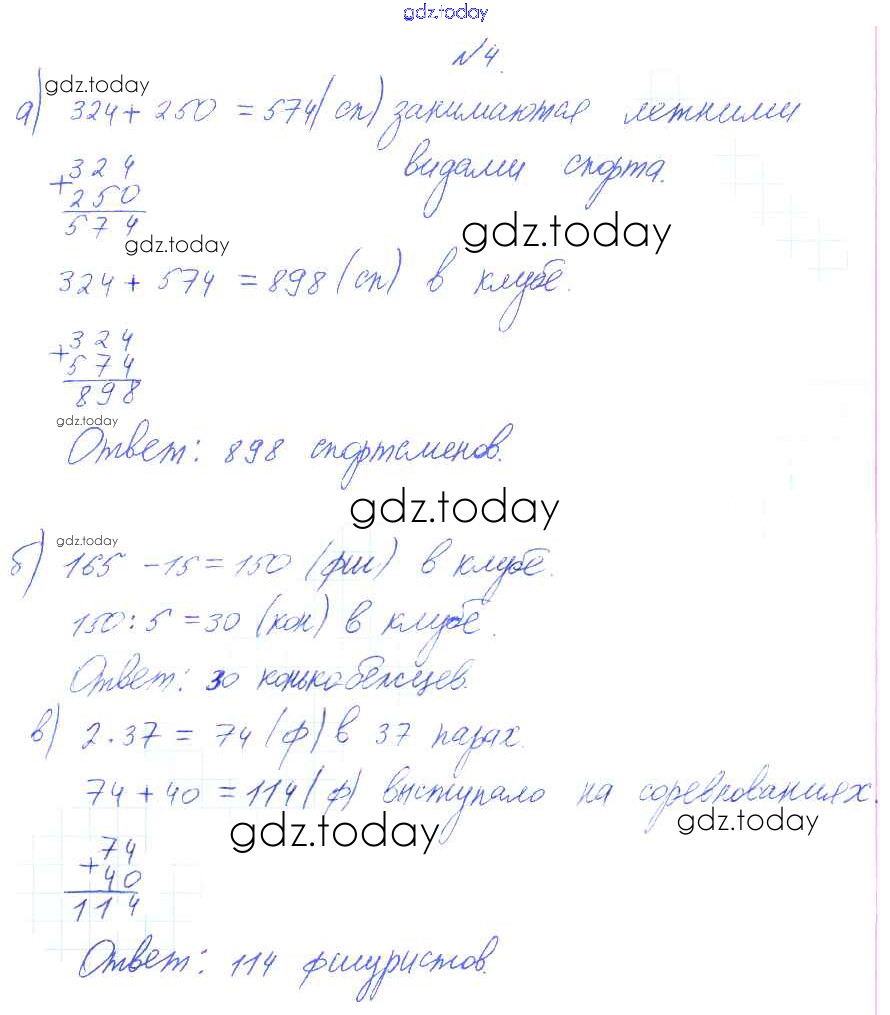 gdz.today
№ 4.
gdz.today
а) 324 + 250 = 574 (сп) занимаются летними
видами спорта.
+ 324
250
574
gdz.today
gdz.today
324 + 574 = 898 (сп) в клубе.
+ 324
574
898
gdz.today
Ответ: 898 спортсменов.
gdz.today
gdz.today
б) 165 - 15 = 150 (фиг) в клубе.
150 : 5 = 30 (кон) в клубе.
Ответ: 30 конькобежцев.
в) 2 · 37 = 74 (ф) в 37 парах.
74 + 40 = 114 (ф) выступало на соревнованиях.
gdz.today
gdz.today
+ 74
40
114
Ответ: 114 фигуристов.